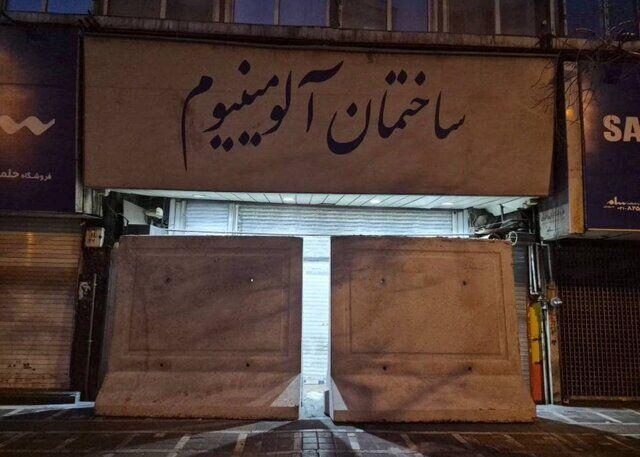 ساختمان آلومینیوم
فروشگاه حلما
SA